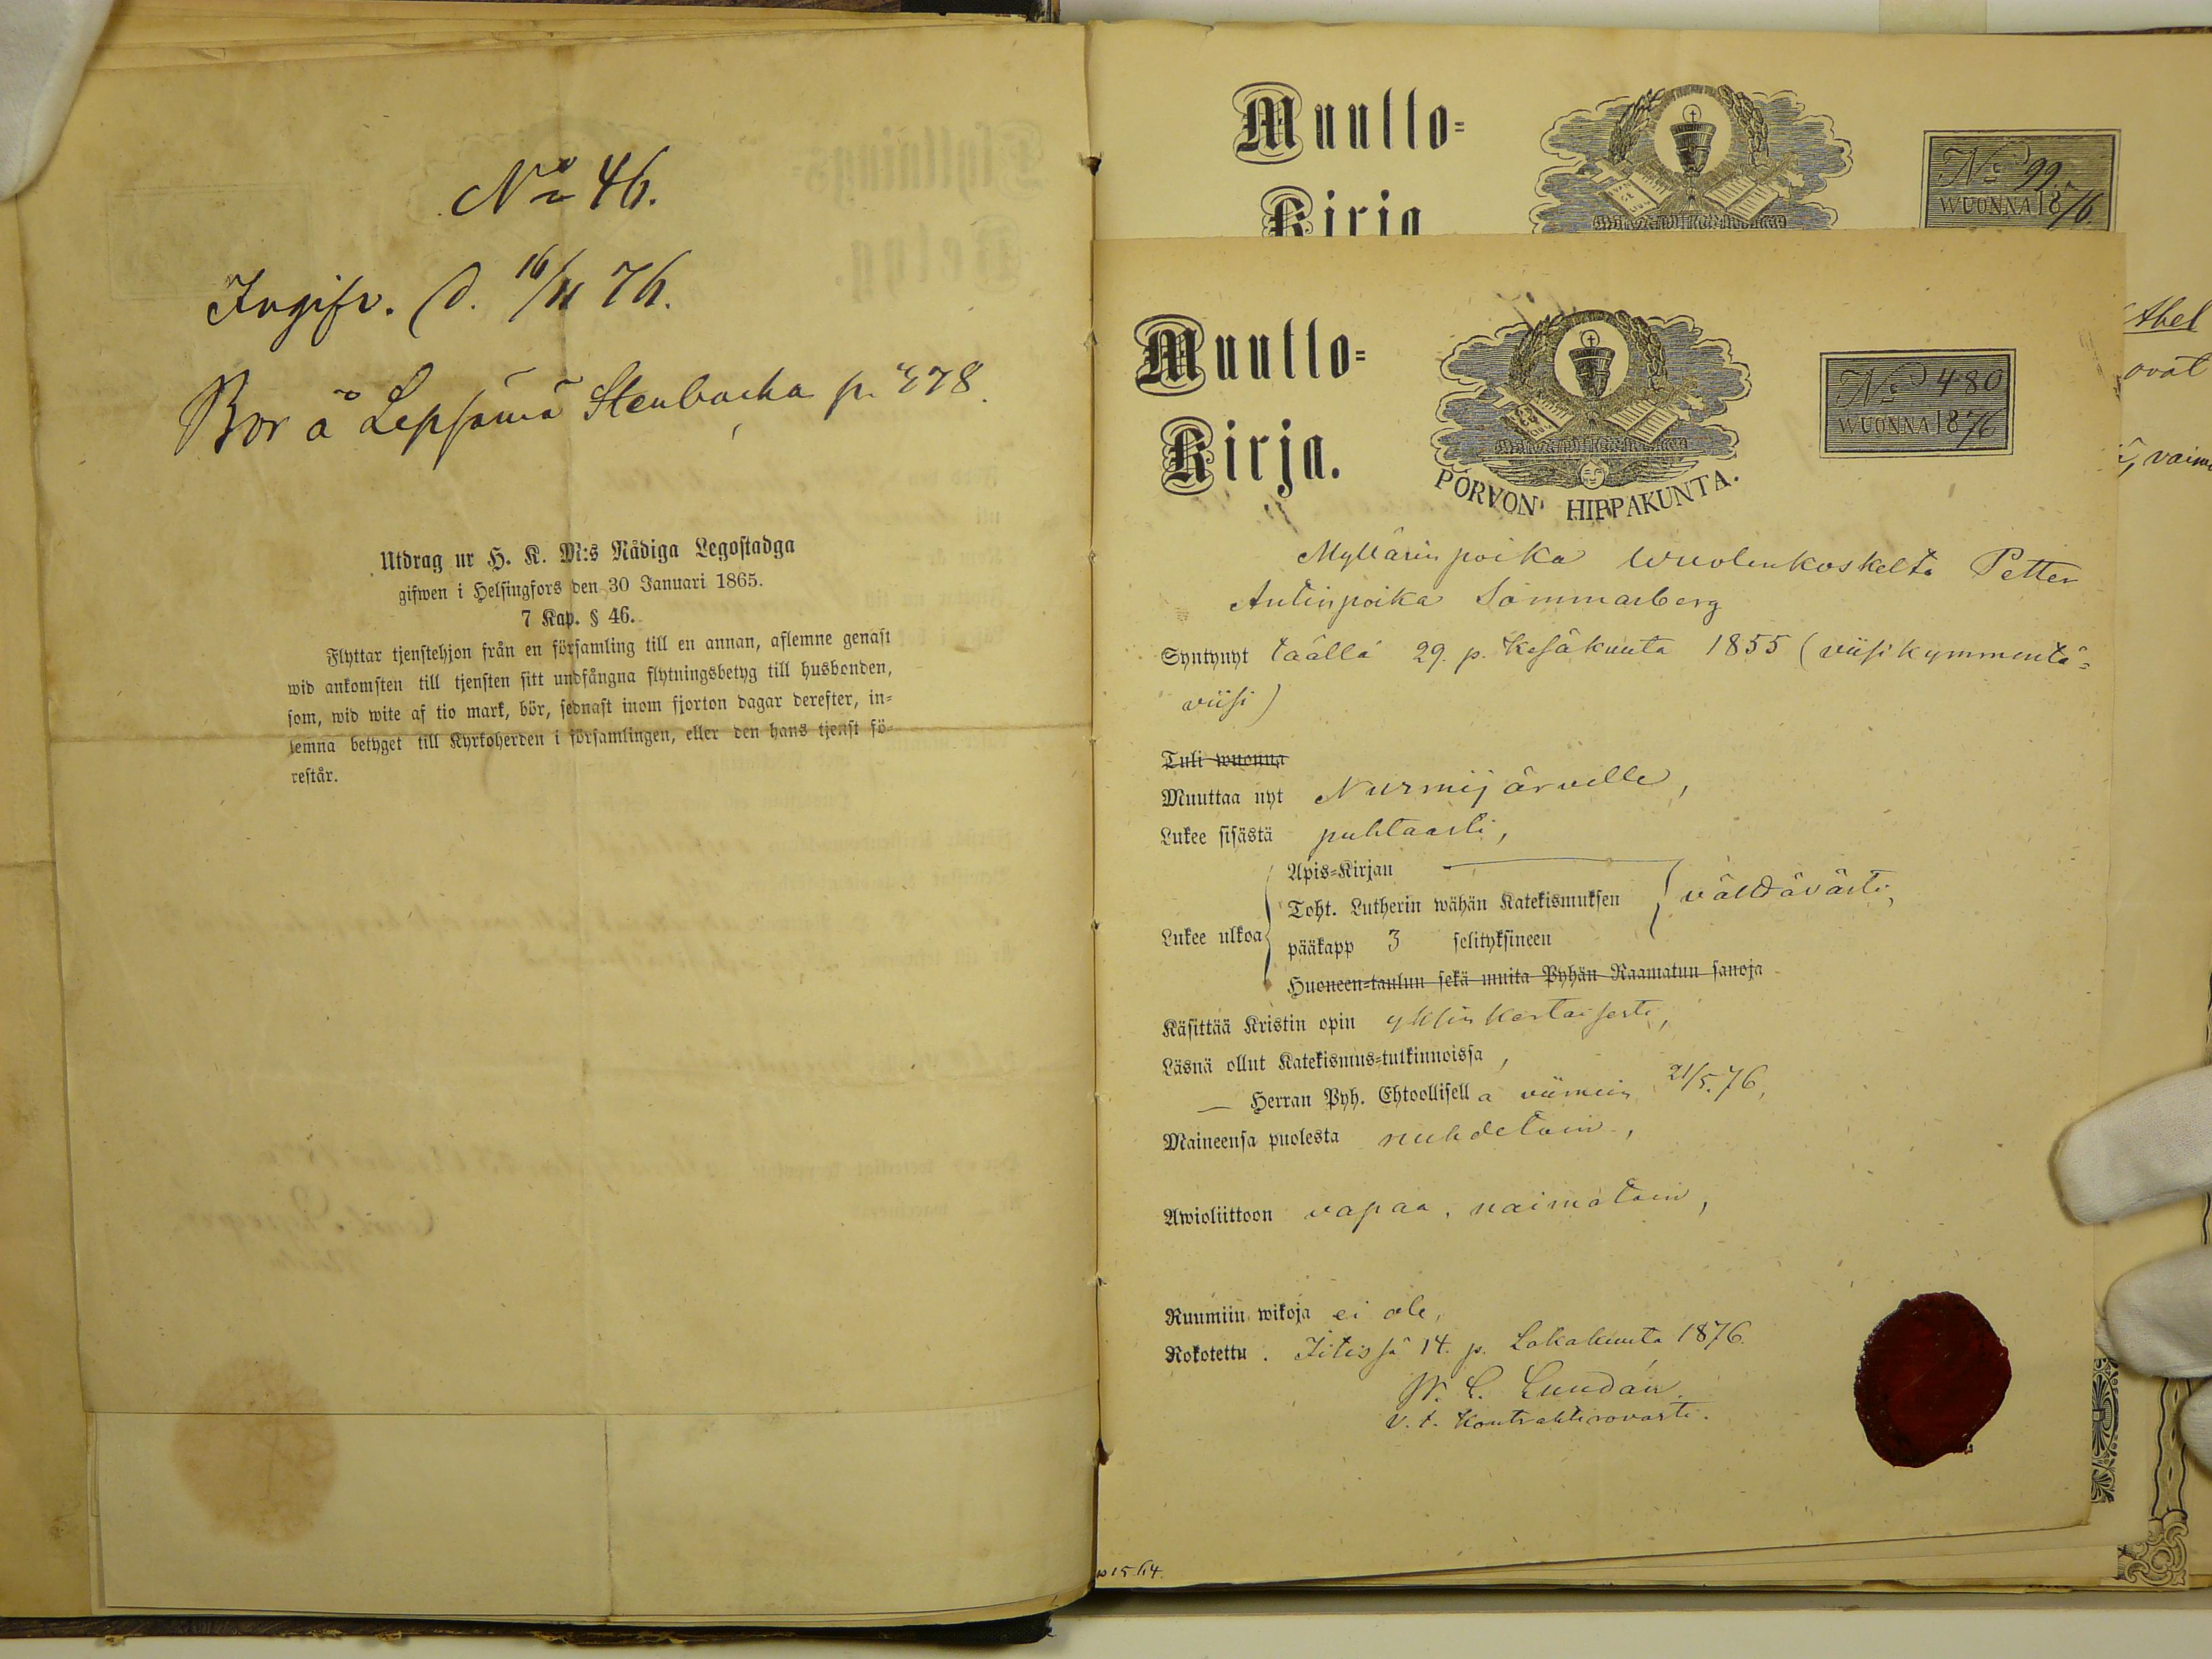 No 46.
Ingifv. d. 16/11 76.
Bor å Lepsämä Stenbacka p. 378.
Utdrag ur H. K. M:s Nådiga Legostadga
gifwen i Helsingfors den 30 Januari 1865.
7 Kap. § 46.
Flyttar tjenstehjon från en församling till en annan, aflemne genast
wid ankomsten till tjensten sitt undfångna flytningsbetyg till husbonden,
som, wid wite af tio mark, bör, sednast inom fjorton dagar derefter, in-
lemna betyget till Kyrkoherden i församlingen, eller den hans tjenst fö-
restår.
Muutto-
Kirja
No 99.
WUONNA 1876.
Abel
ovat
vaimo
Muutto-
Kirja.
PORVON HIPPAKUNTA.
No 480
WUONNA 1876
Myllärin poika Wuolenkoskelta Petter
Antinpoika Sommarberg
Syntynyt täällä 29. p. Kesäkuuta 1855 (viisikymmentä-
viisi)
Tuli wuonna
Muuttaa nyt Nurmijärvelle,
Lukee sisästä puhtaasti,
Apis-Kirjan
Toht. Lutherin wähän Katekismuksen
välttävästi,
Lukee ulkoa
pääkapp 3 selityksineen
Huoneen-taulun sekä muita Pyhän Raamatun sanoja
Käsittää Kristin opin yksinkertaisesti,
Läsnä ollut Katekismus-tutkinnoissa,
— Herran Pyh. Ehtoollisella viimein 21/5.76,
Maineensa puolesta nuhdetoin,
Awioliittoon vapaa, naimatoin,
Ruumiin wikoja ei ole,
Rokotettu. Iitissä 14. p. Lokakuuta 1876.
Lundán.
v. t. Kontrahtirovasti.